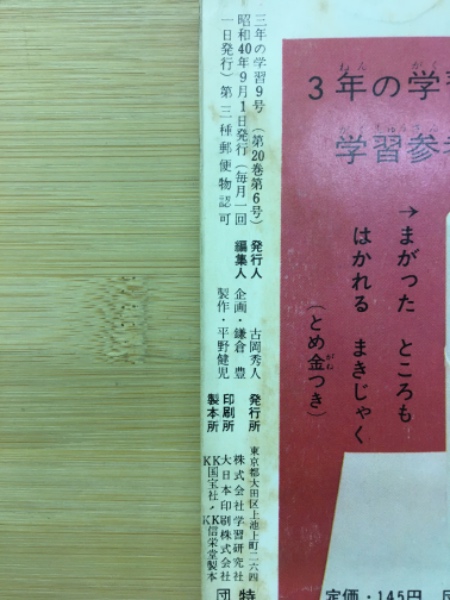 三年の学習9号 (第20巻第6号) 発行人 古岡秀人 発行所 東京都大田区上池上町二六四
昭和40年9月1日発行(毎月一回 編集人 企画・鎌倉 豊 印刷所 株式会社学習研究社
一日発行)第三種郵便物認可 製作・平野健児 製本所 大日本印刷株式会社
KK国宝社・KK信栄堂製本
3年の学習
学習参考
→まがった ところも
はかれる まきじゃく
(とめ金つき)
定価・145円
特
団